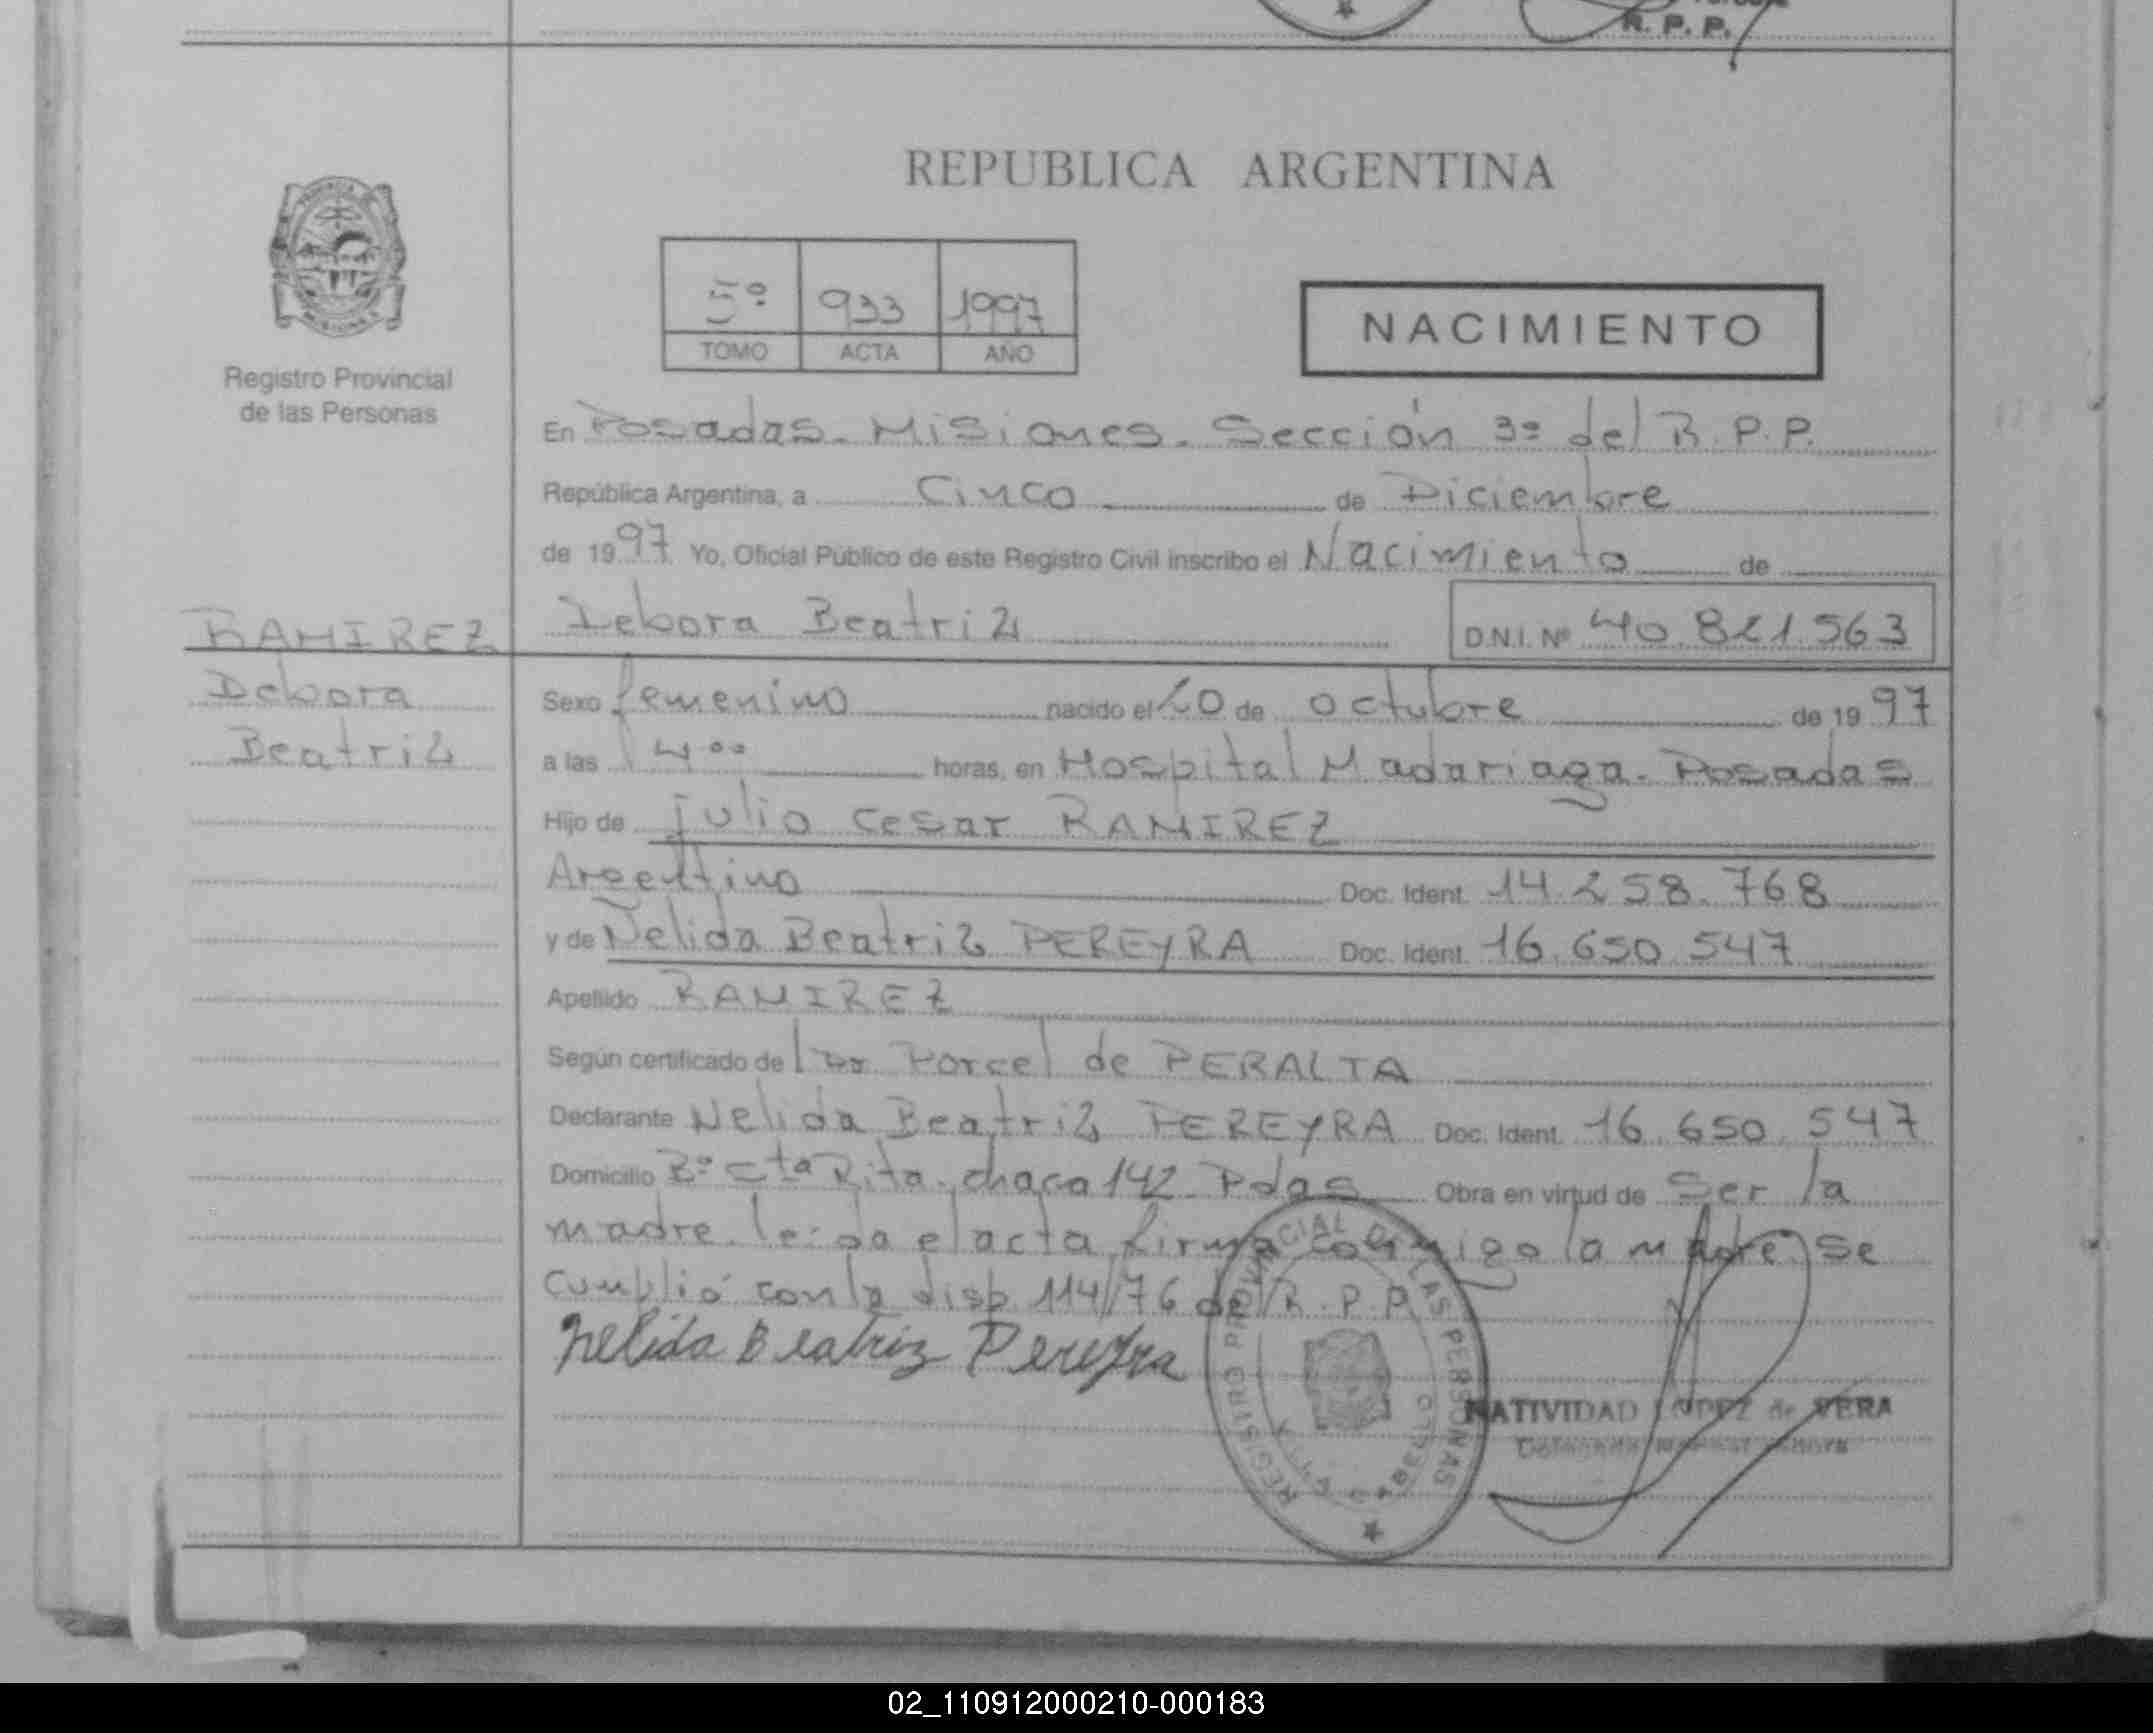 R. P. P.
REPUBLICA ARGENTINA
5º 933 1997
TOMO ACTA AÑO
NACIMIENTO
Registro Provincial
de las Personas
En Posadas. Misiones. Sección 3º del R. P. P.
República Argentina, a Cinco de Diciembre
de 1997 Yo, Oficial Público de este Registro Civil inscribo el Nacimiento de
RAMIREZ
Debora
Beatriz
Debora Beatriz D.N.I. Nº 40.821.563
Sexo femenino nacido el 20 de octubre de 1997
a las 4°° horas, en Hospital Madariaga. Posadas
Hijo de Julio Cesar RAMIREZ
Argentino Doc. Ident. 14.258.768
y de Nelida Beatriz PEREYRA Doc. Ident. 16.650.547
Apellido RAMIREZ
Según certificado de Porcel de PERALTA
Declarante Nelida Beatriz PEREYRA Doc. Ident. 16.650.547
Domicilio Bº Sta Rita. chaca 142. Pdas Obra en virtud de Ser la
madre. leida el acta firma conmigo la madre. Se
cumplió con la disp. 114/76 del R.P.P.
Nelida Beatriz Pereyra
REGISTRO PROVINCIAL DE LAS PERSONAS
VILLA CABELLO
NATIVIDAD LOPEZ de VERA
02_110912000210-000183